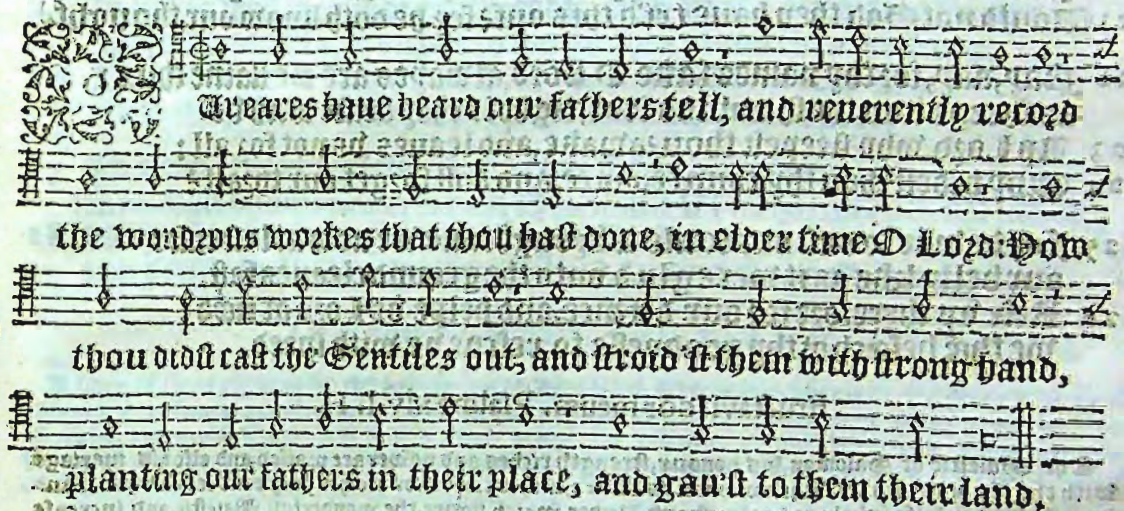 OUr eares haue heard our fathers tell, and reuerently record
the wondrous workes that thou hast done, in elder time O Lord: How
thou didst cast the Gentiles out, and stroid'st them with strong hand,
planting our fathers in their place, and gau'st to them their land.